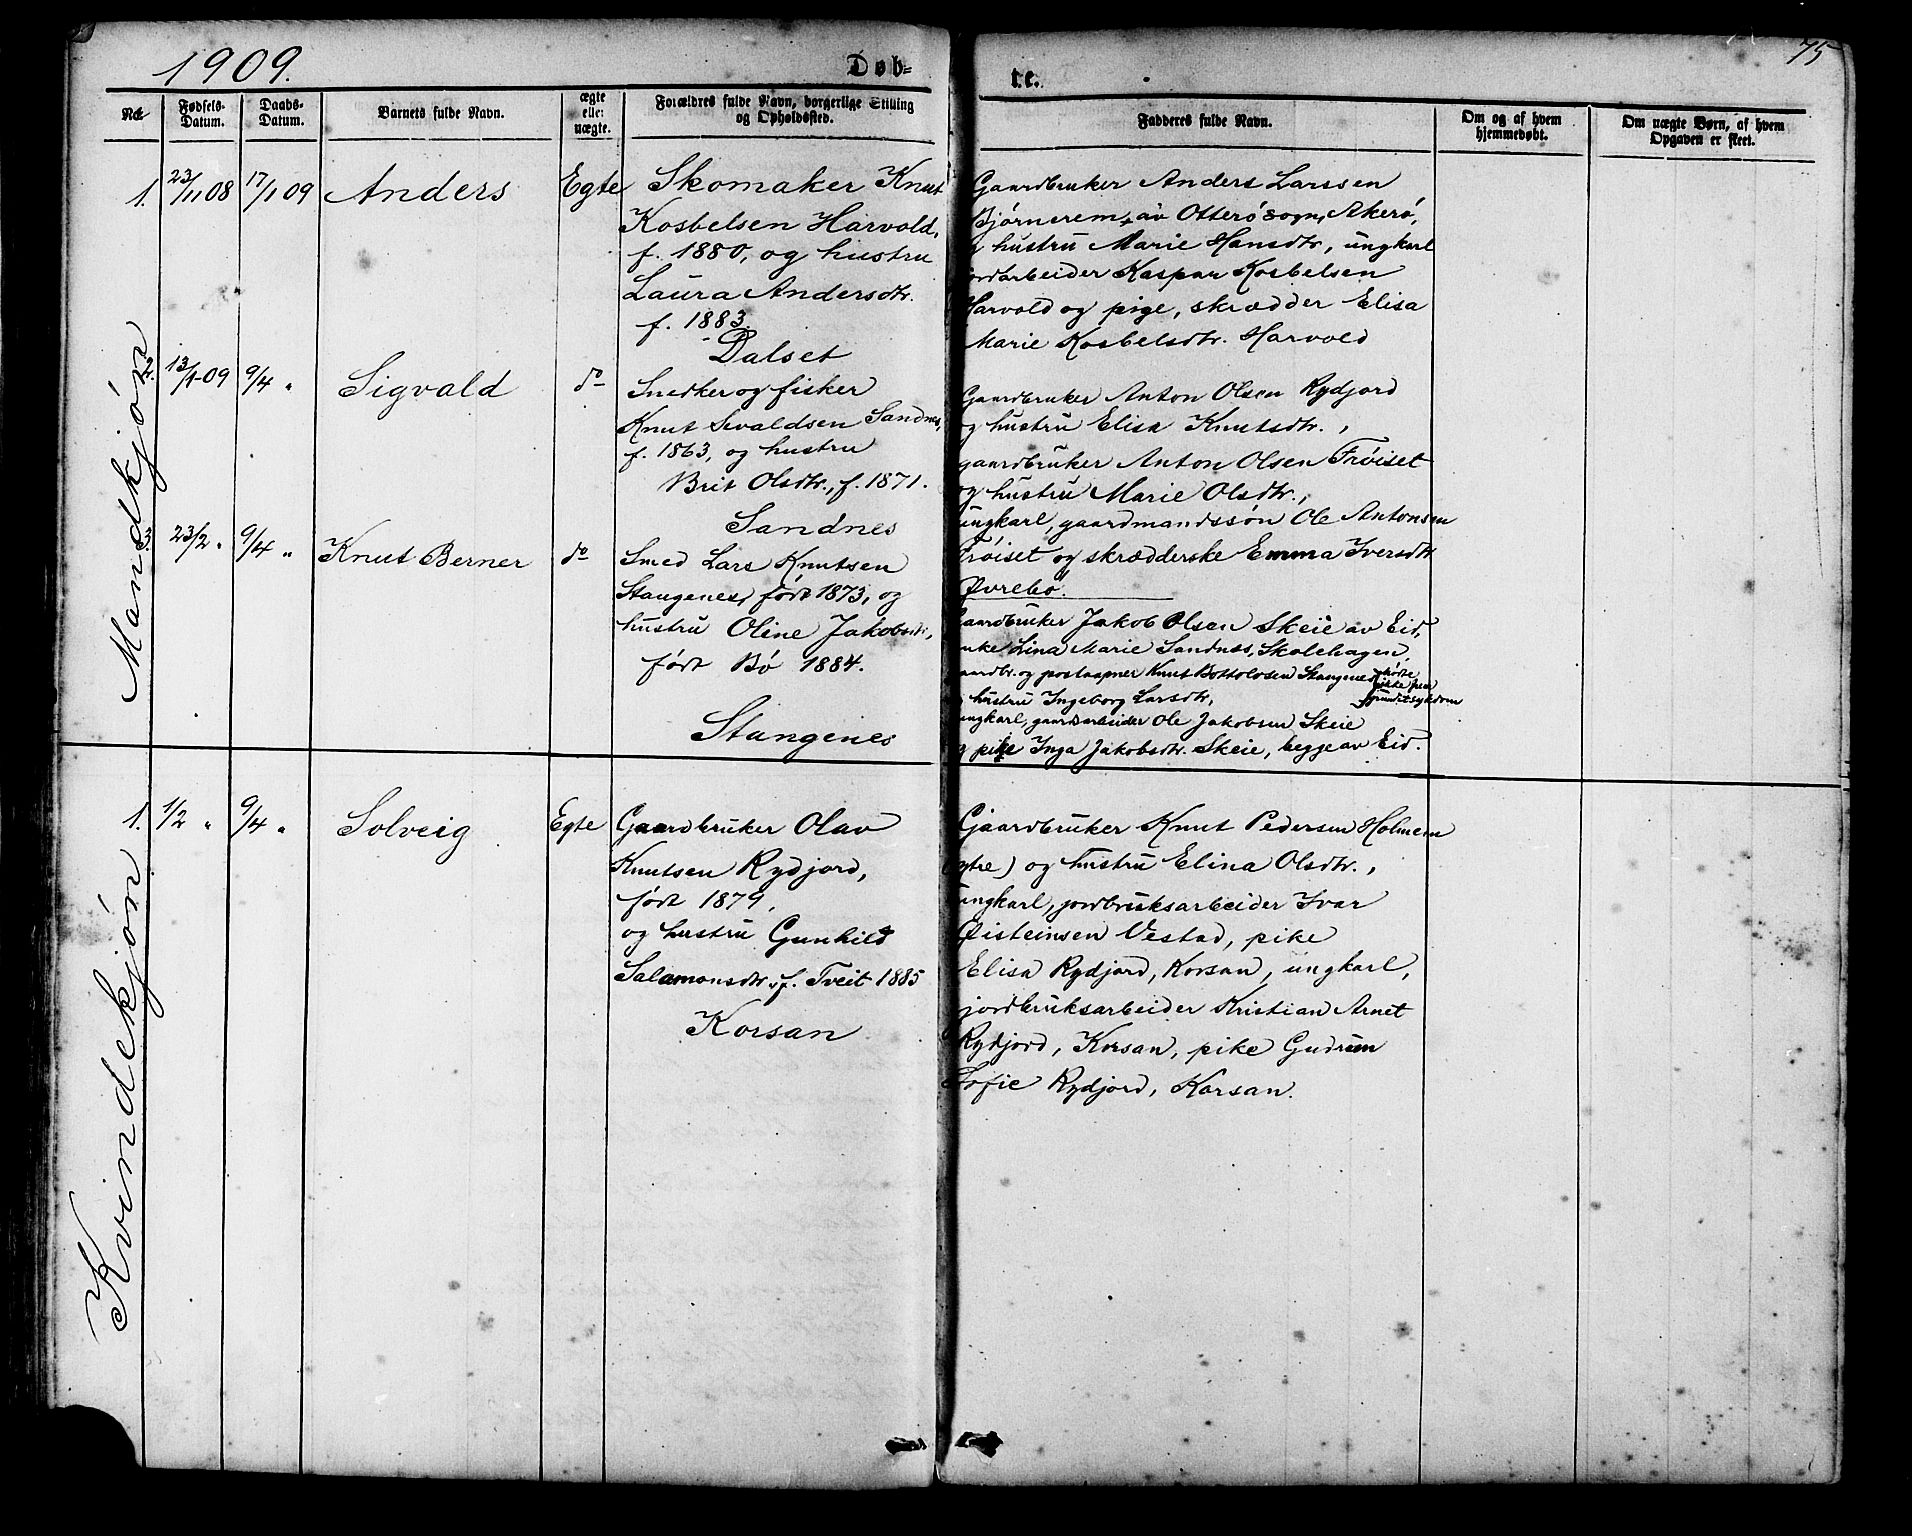 1909.
Døb-
te.
75
No.
Fødsels-
Datum.
Daabs-
Datum.
Barnets fulde Navn.
ægte
eller
uægte.
Forældres fulde Navn, borgerlige Stilling
og Opholdssted.
Fadderes fulde Navn.
Om og af hvem
hjemmedøbt.
Om uægte Børn, af hvem
Opgaven er skeet.
Mandkjøn
1. 23/11 08 17/1 09 Anders Egte
Skomaker Knut
Kosbelsen Harvold,
f. 1880, og hustru
Laura Andersdtr.
f. 1883
Dalset
Gaardbruker Anders Larssen
Bjørnerem, av Otterø sogn, Akerø,
og hustru Marie Hansdtr, ungkarl
jordarbeider Kaspar Kosbelsen
Harvold og pige, skrædder Elisa
Marie Kosbelsdtr. Harvold
2. 13/1-09 9/4 " Sigvald do
Snedker og fisker
Knut Sevaldsen Sandnes,
f. 1863, og hustru
Brit Olsdtr., f. 1871.
Sandnes
Gaardbruker Anton Olsen Rydjord
og hustru Elisa Knutsdtr.,
gaardbruker Anton Olsen Frøiset
og hustru Marie Olsdtr.,
ungkarl, gaardmandssøn Ole Antonsen
Frøiset og skrædderske Emma Iversdtr
Øvrebø.
3. 23/2 " 9/4 " Knut Berner do
Smed Lars Knutsen
Stangenes, født 1873, og
hustru Oline Jakobsdtr,
født Bø 1884.
Stangenes
Gaardbruker Jakob Olsen Skeie av Eid,
enke Lina Marie Sandnes, Skolehagen,
gaardbr. og postaapner Knut Bottolvsen Stangenes
møtte
ikke paa
grund af sykdom
og hustru Ingeborg Larsdtr,
ungkarl, gaardsarbeider Ole Jakobsen Skeie
og pike Inga Jakobsdtr. Skeie, begge av Eid.
Kvindekjøn
1. 1/2 " 9/4 " Solveig Egte
Gaardbruker Olav
Knutsen Rydjord,
født 1879,
og hustru Gunhild
Salamonsdtr., f. Tveit 1885
Korsan
Gaardbruker Knut Pedersen Holmem
(ytre) og hustru Elina Olsdtr.,
ungkarl, jordbruksarbeider Ivar
Øisteinsen Vestad, pike
Elisa Rydjord, Korsan, ungkarl,
jordbruksarbeider Kristian Arnet
Rydjord, Korsan, pike Gudrun
Sofie Rydjord, Korsan.